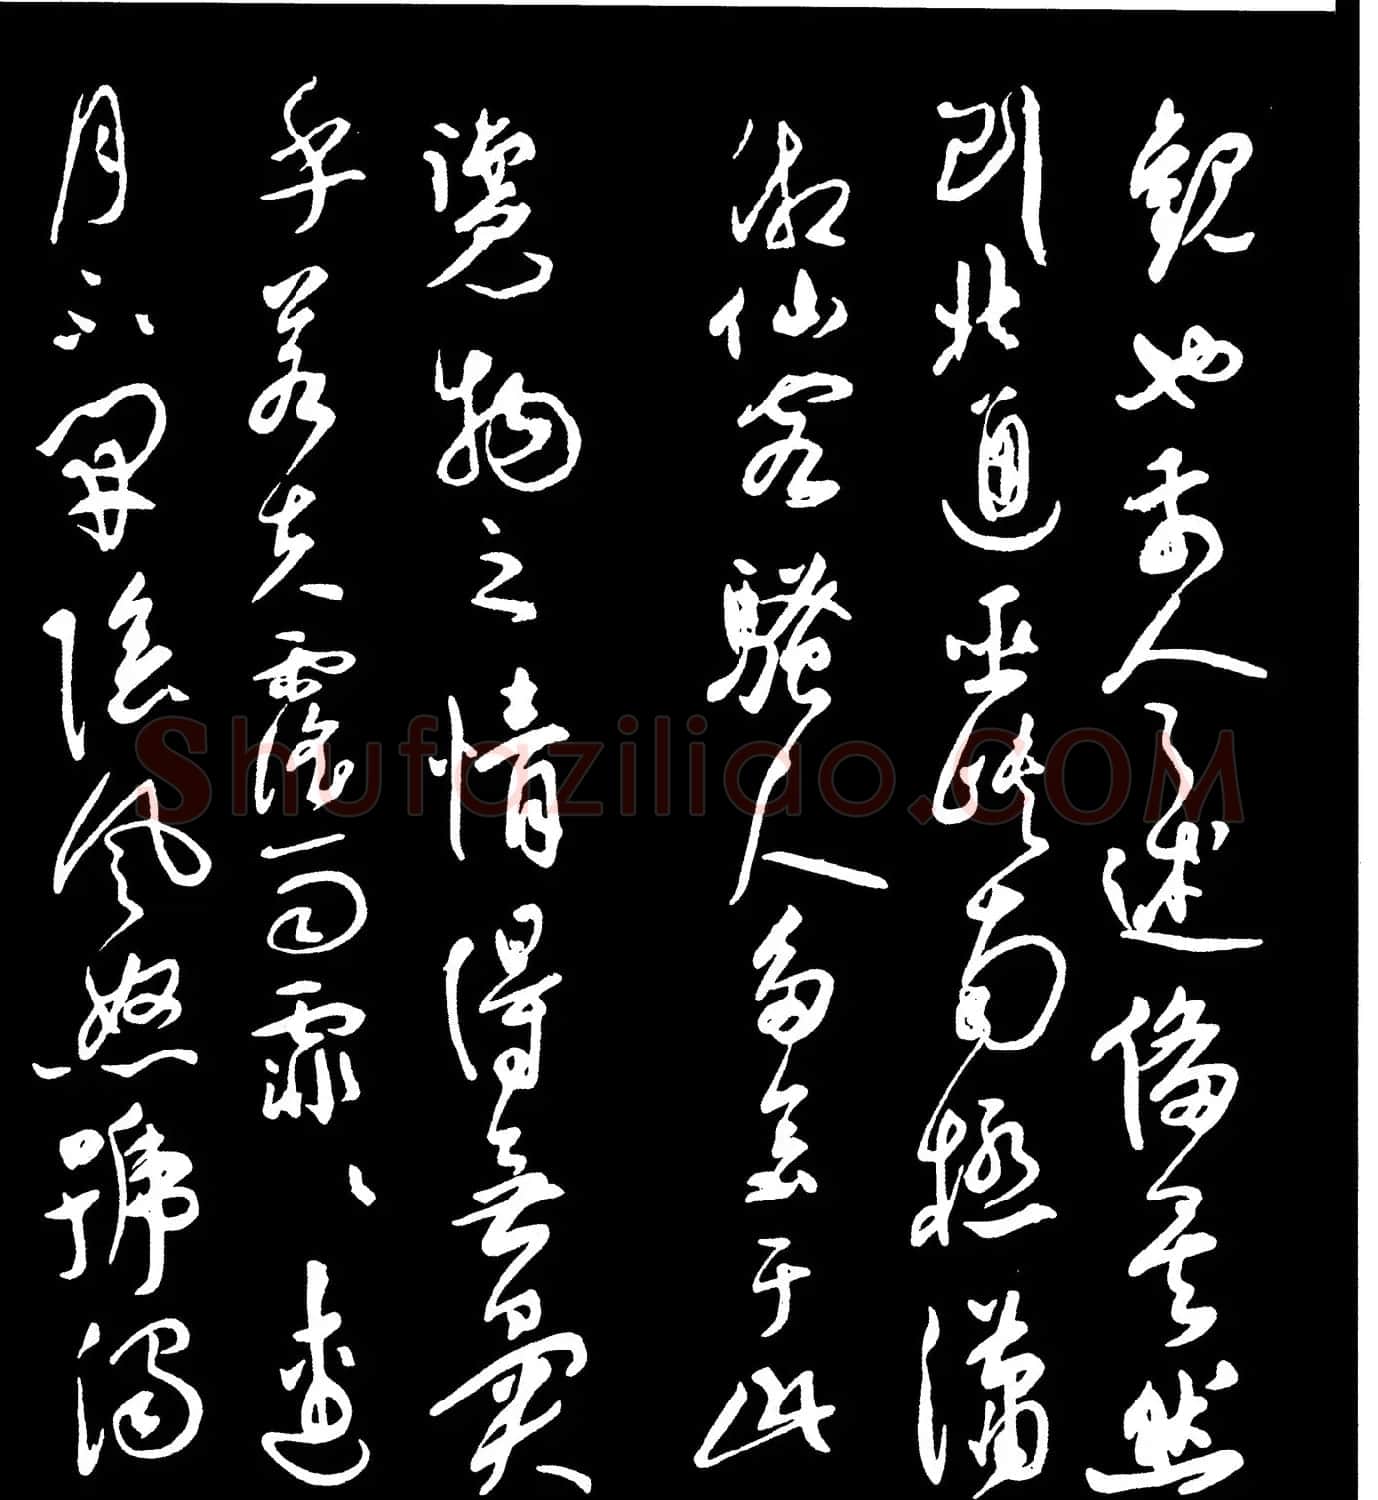 觀也前人之述備矣然
則北通巫峽南極瀟
湘仙客騷人多會于此
覽物之情得無異
乎若夫霪雨霏〻連
月不開陰風怒號濁
Shufaziliao.COM